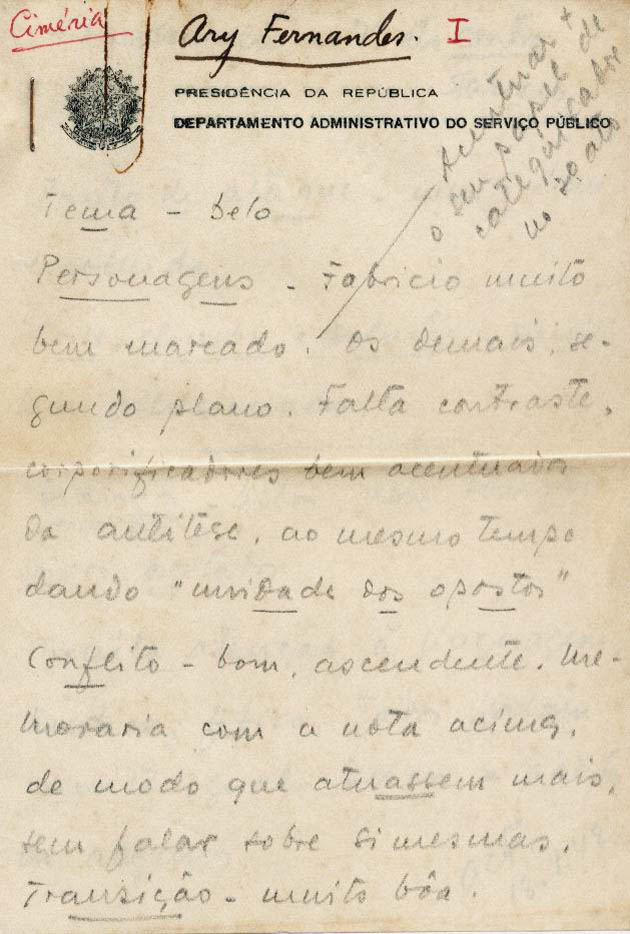 Ciméria
Ary Fernandes. I
PRESIDÊNCIA DA REPÚBLICA
DEPARTAMENTO ADMINISTRATIVO DO SERVIÇO PÚBLICO
Acentuar +
o seu papel de
no 3º ato
Tema - belo
Personagens - Fabricio muito
bem marcado. Os demais, se-
gundo plano. Falta contraste,
corporificadores bem acentuados
da antítese, ao mesmo tempo
dando "unidade dos opostos"
Conflito - bom, ascendente. Me-
lhoraria com a nota acima,
de modo que atuassem mais,
sem falar sobre si mesmas.
Transição - muito bôa.